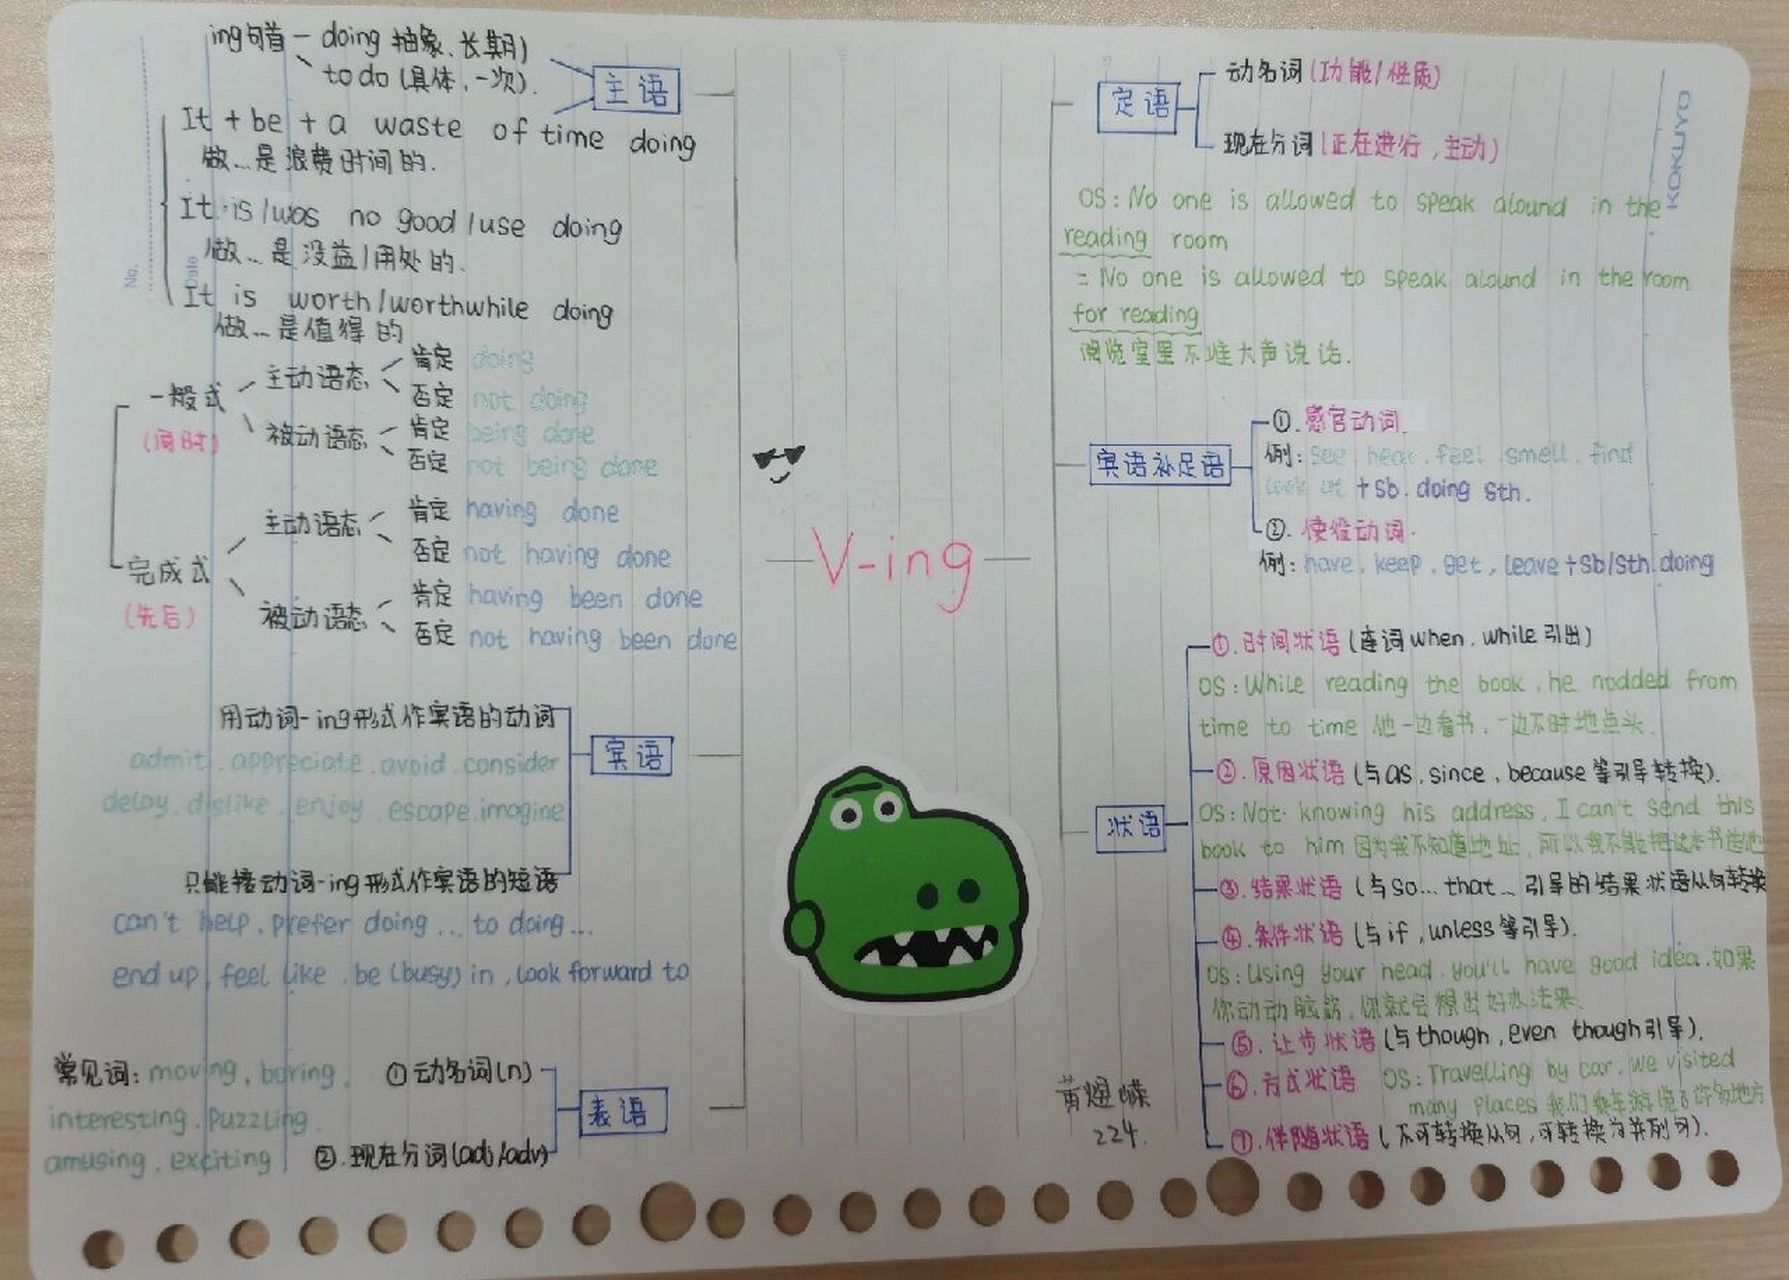 ing句首 - doing 抽象、长期)
to do (具体, 一次).
主语
It + be + a waste of time doing
做...是浪费时间的.
It is/was no good/use doing
做...是没益/用处的.
It is worth/worthwhile doing
做...是值得的
一般式
(同时)
主动语态
肯定 doing
否定 not doing
被动语态
肯定 being done
否定 not being done
完成式
(先后)
主动语态
肯定 having done
否定 not having done
被动语态
肯定 having been done
否定 not having been done
用动词-ing形式作宾语的动词
宾语
admit. appreciate. avoid. consider
delay. dislike. enjoy. escape. imagine
只能接动词-ing形式作宾语的短语
can't help. prefer doing ... to doing ...
end up, feel like. be (busy) in, look forward to
常见词: moving, boring,
interesting. puzzling
amusing. exciting
①动名词(n)
表语
②.现在分词(adj/adv)
V-ing
定语
动名词(功能/性质)
现在分词(正在进行,主动)
OS: No one is allowed to speak alound in the
reading room
= No one is allowed to speak alound in the room
for reading
阅览室里不准大声说话.
宾语补足语
①.感官动词.
例: see hear. feel. smell. find
look at +sb. doing sth.
②.使役动词.
例: have, keep. get, leave +sb/sth. doing
状语
①.时间状语(连词when, while引出)
OS: While reading the book, he nodded from
time to time 他一边看书,一边不时地点头.
②.原因状语(与as, since, because等引导转换).
OS: Not knowing his address, I can't send this
book to him 因为我不知道地址,所以我不能把这本书送他
③.结果状语(与so...that...引导的结果状语从句转换
④.条件状语(与if, unless等引导).
OS: Using your head, you'll have good idea.如果
你动动脑筋,你就会想出好办法来.
⑤.让步状语(与though, even though引导).
⑥.方式状语 OS: Travelling by car, we visited
many places 我们乘车游览了许多地方
⑦.伴随状语(不可转换从句,可转换为并列句).
224.
KOKUYO
No.
Date